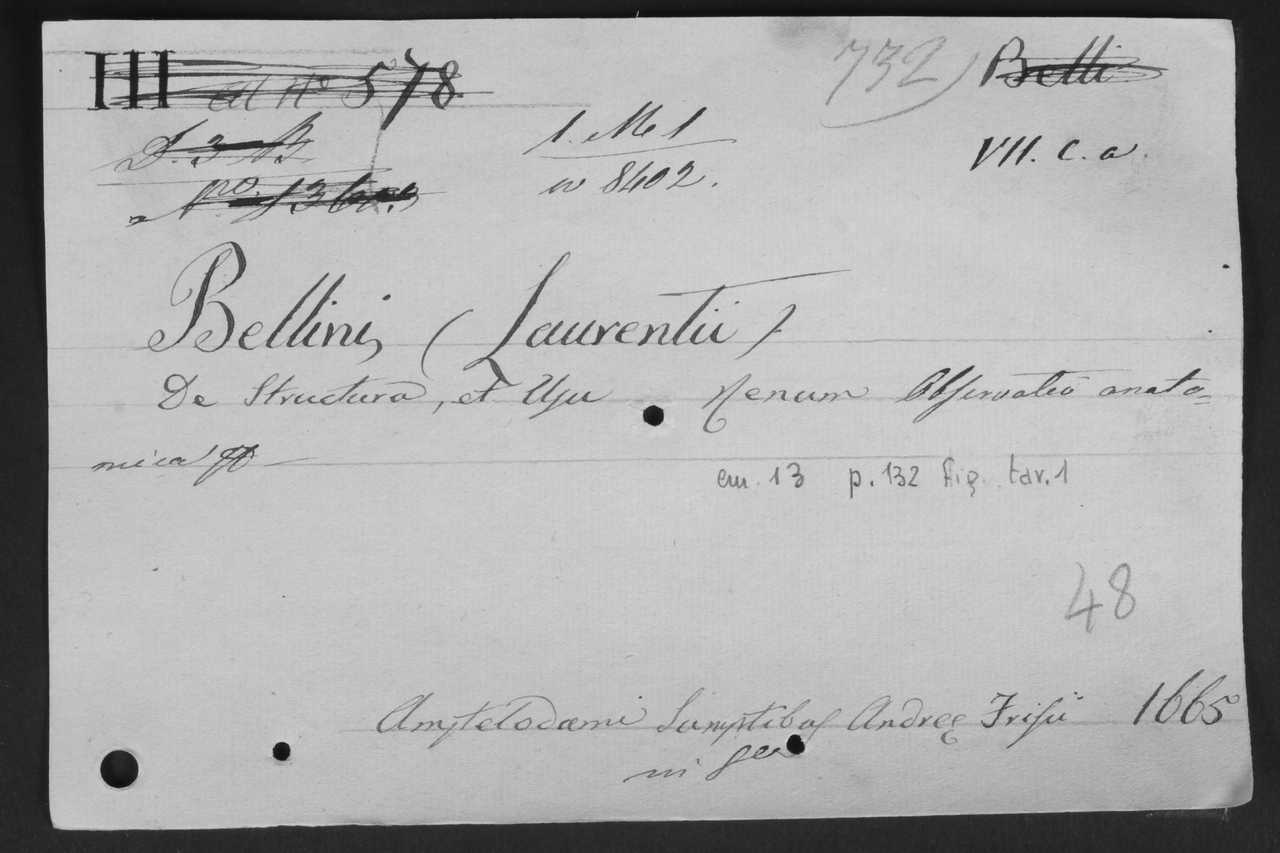 III 578
732)
Belli
1. Me 1
8402.
VII. C. a.
Bellini, (Laurentii)
De Structura, et Usu Renum Observatio anato=
mica &
cm. 13 p. 132 fig. tav. 1
48
Amstelodami Sumptibus Andreę Frisii 1665